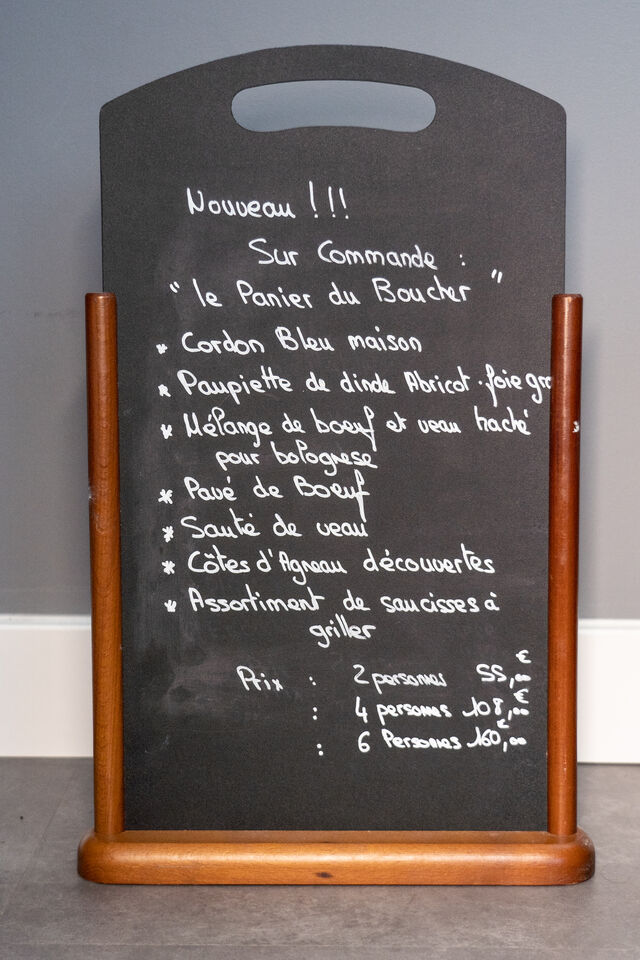 Nouveau !!!
Sur Commande :
" le Panier du Boucher "
* Cordon Bleu maison
* Paupiette de dinde Abricot . foie gra
* Mélange de boeuf et veau haché
pour bolognese
* Pavé de Boeuf
* Sauté de veau
* Côtes d'Agneau découvertes
* Assortiment de saucisses à
griller
Prix : 2 personnes 55,00 €
: 4 personnes 108,00 €
: 6 Personnes 160,00 €